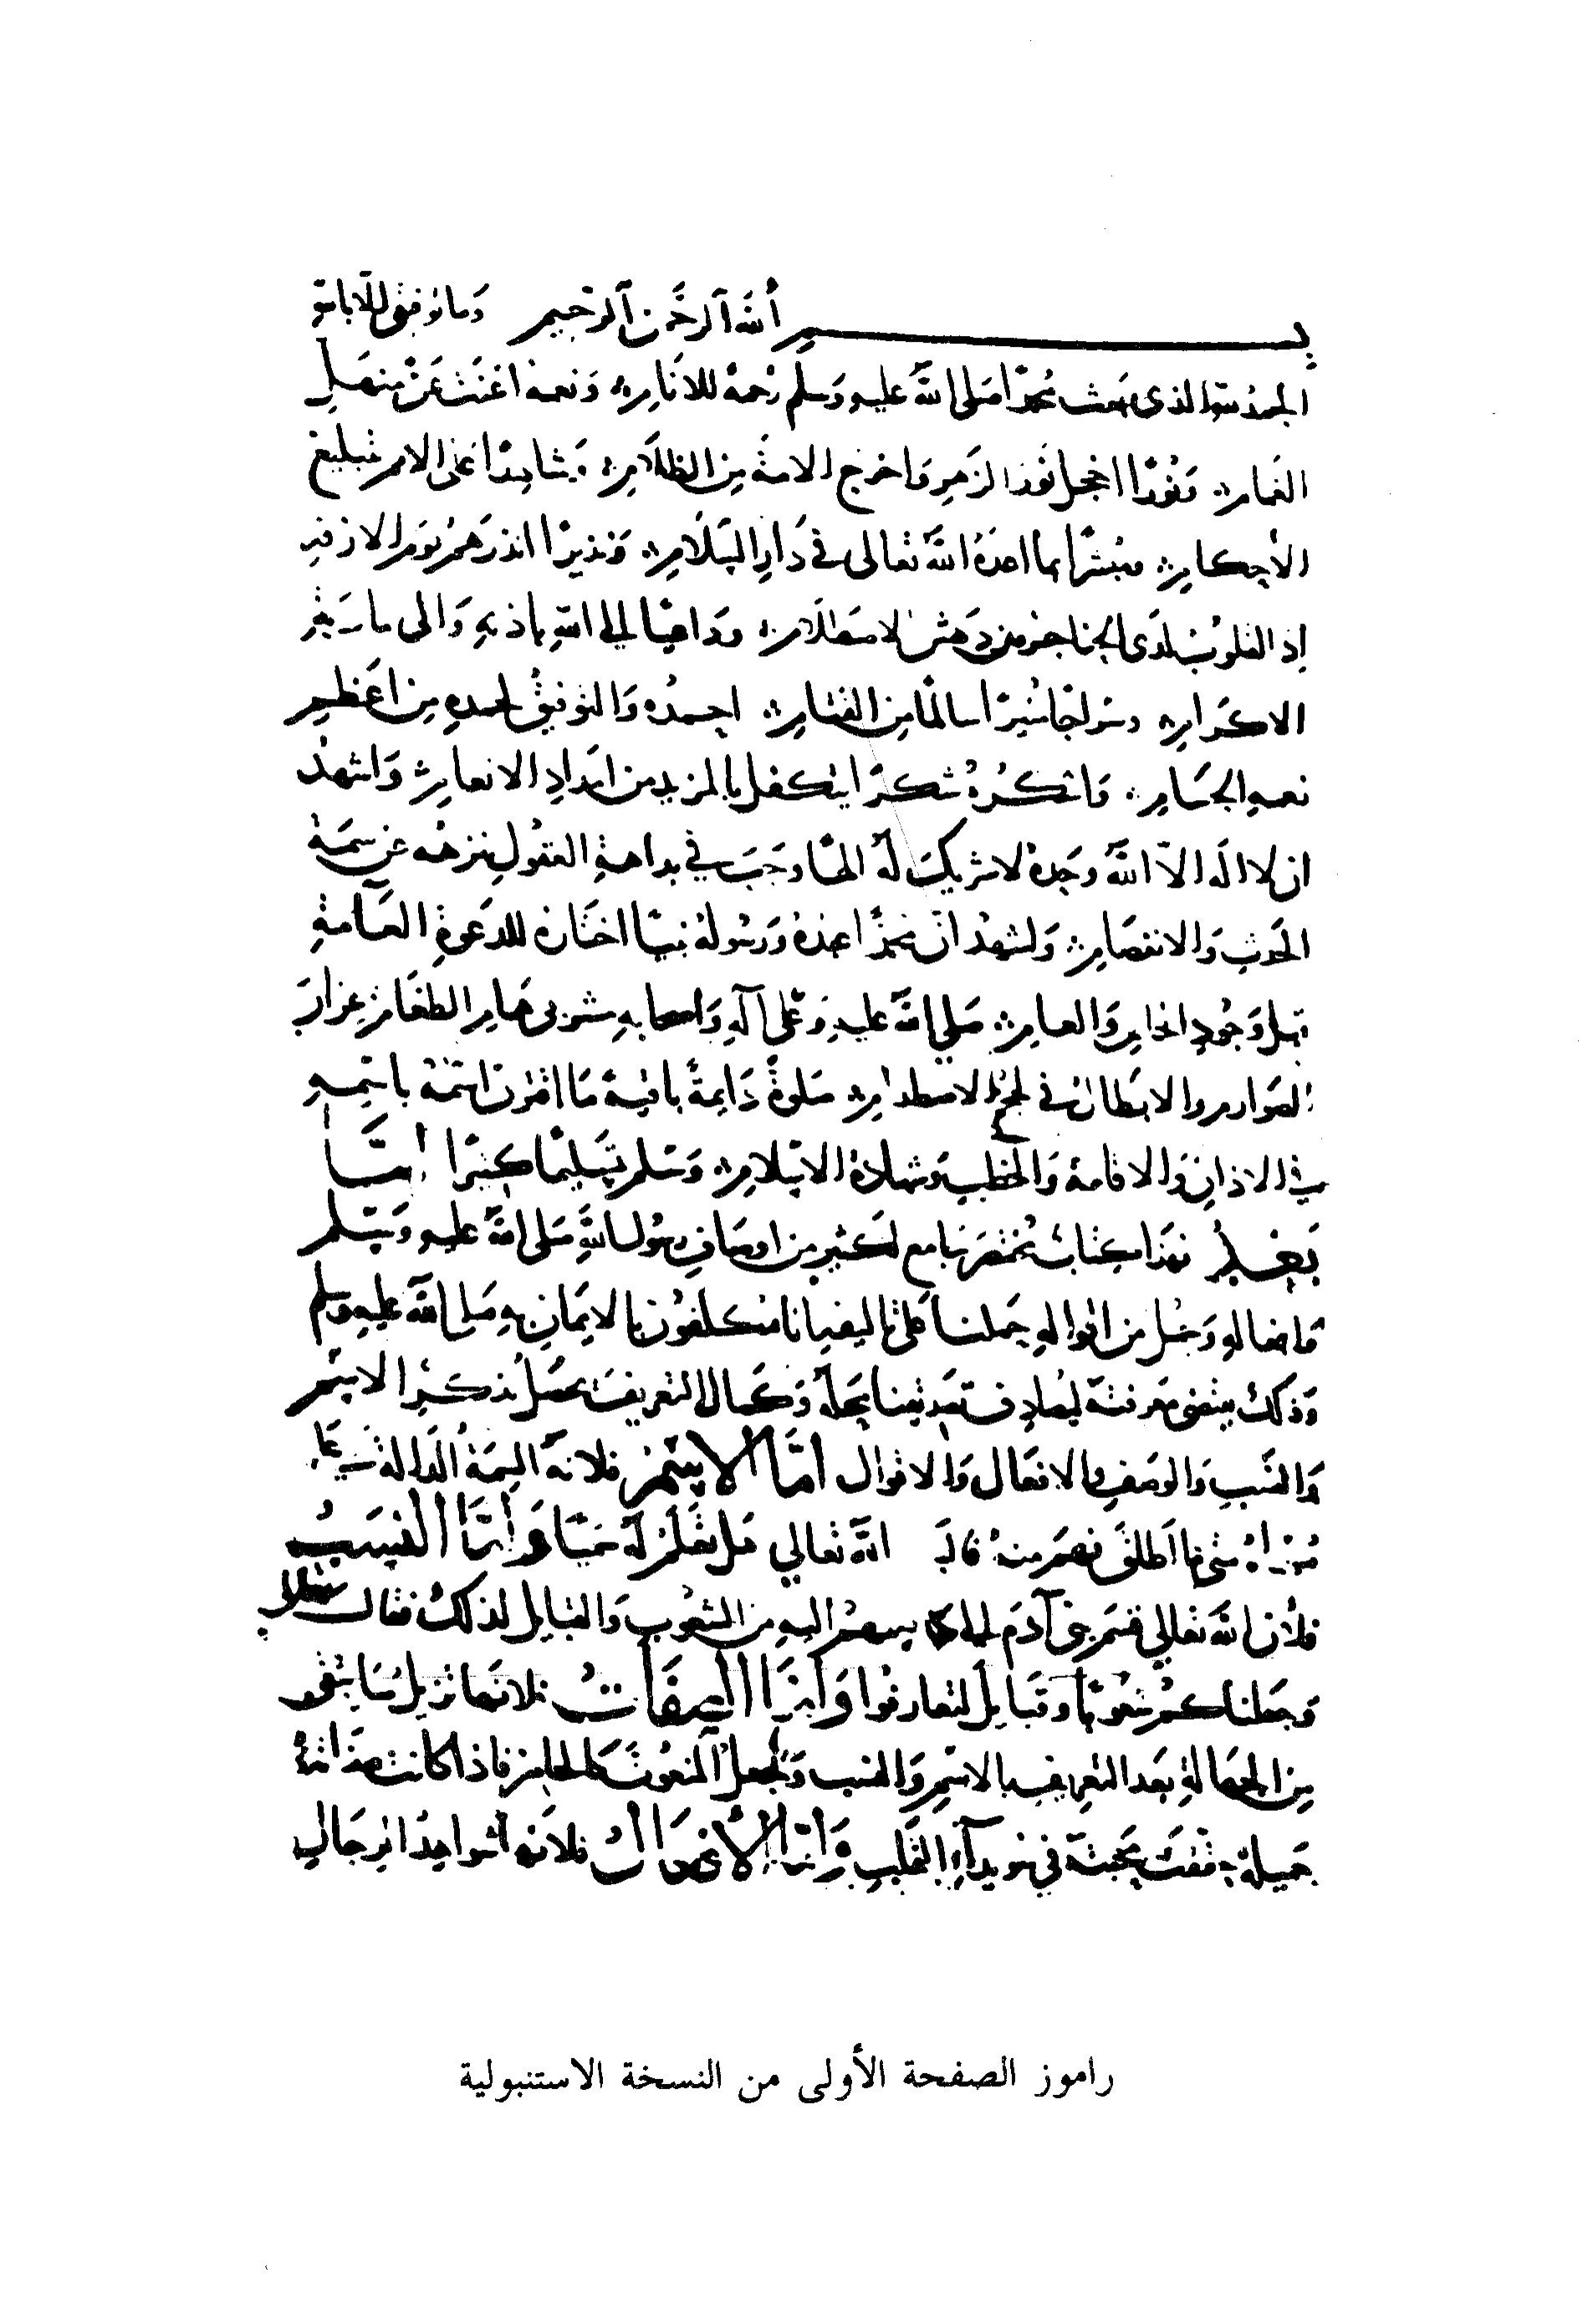 بسم الله الرحمن الرحيم وما توفيقي إلا بالله
الحمد لله الذي بعث محمدا صلى الله عليه وسلم رحمة للأنام ونعمة أغنت عن منهل
الغمام ونورا أخجل نور الزهر وأخرج الأمة من الظلام وشاهدا على الأمر تبليغ
الأحكام ومبشرا بما أعده الله تعالى في دار السلام ونذيرا أنذرهم يوم الآزفة
إذ القلوب لدى الحناجر من دهش الاصطلام وداعيا إلى الله بإذنه وإلى
الإكرام وسراجا منيرا سالما من القتام أحمده والتوفيق لحمده من أعظم
نعمه الجسام وأشكره شكرا يتكفل بالمزيد من إمداد الإنعام وأشهد
ان لا اله الا الله وحده لا شريك له الها وجب في بداهة العقول تنزهه عن سمة
الحدوث والانفصام وأشهد ان محمدا عبده ورسوله نبيا اختاره للدعوة العامة
قبل وجود الخاص والعام صلى الله عليه وعلى آله وأصحابه
الصوارم والأبطال في لجج الاصطدام صلوة دايمة باقية ما اقترن اسمه باسمه
في الاذان والاقامة والخطب وشهادة الاسلام وسلم تسليما كثيرا اما
بعد فهذا كتاب مختصر جامع لكثير من اوصاف رسول الله صلى الله عليه وسلم
وافعاله وجمل من اقواله حملنا على تاليفه انا مكلفون بالايمان به صلى الله عليه وسلم
وذلك يقتضي معرفته ليصادف تصديقنا محله وكمال التعريف يحصل بذكر الاسم
والنسب والوصف والافعال والاقوال اما الاسم فلانه السمة الدالة على
متى ما اطلق فهم منه قال الله تعالى هل تعلم له سميا واما النسب
فلأن الله تعالى قسم بني آدم الى من الشعوب والقبايل لذلك فقال تعالى
وجعلناكم شعوبا وقبايل لتعارفوا واما الصفات فلانها تزيل ما يبقى
من الجهالة بعد التعريف بالاسم والنسب وتجعل المنعوت كالحاضر فاذا كانت صفاته
جميلة وقعت محبته في سويداء القلب واما الأفعال فلانه
راموز الصفحة الأولى من النسخة الاستنبولية